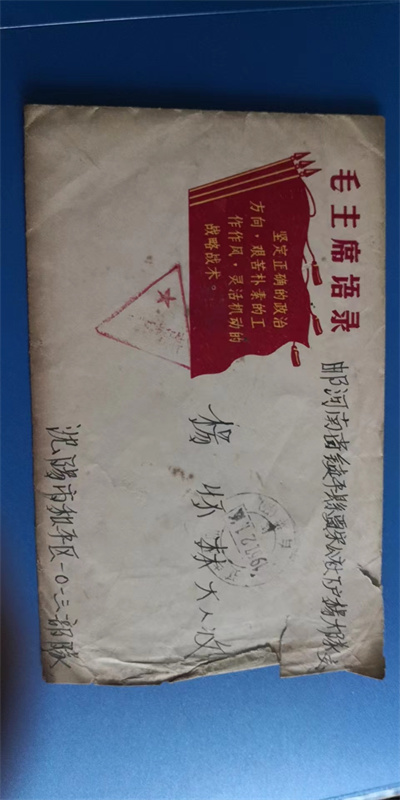 毛主席语录
坚定正确的政治
方向，艰苦朴素的工
作作风，灵活机动的
战略战术。
邮河南省镇平縣贾宋公社
杨怀森大人收
沈阳市和平区一〇一三部队